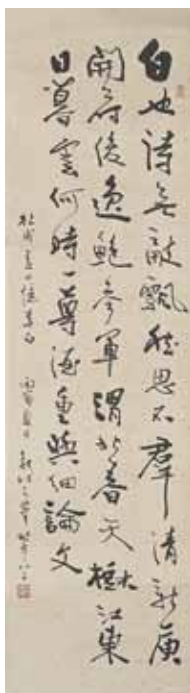 白也詩無敵飄然思不羣清新庾
開府俊逸鮑參軍渭北春天樹江東
日暮雲何時一尊酒重與細論文
杜甫春日憶李白